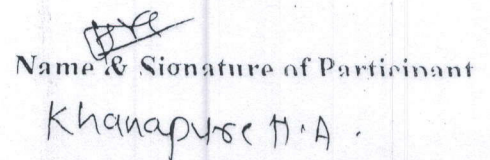 Name & Signature of Participant
Khanapure H.A.